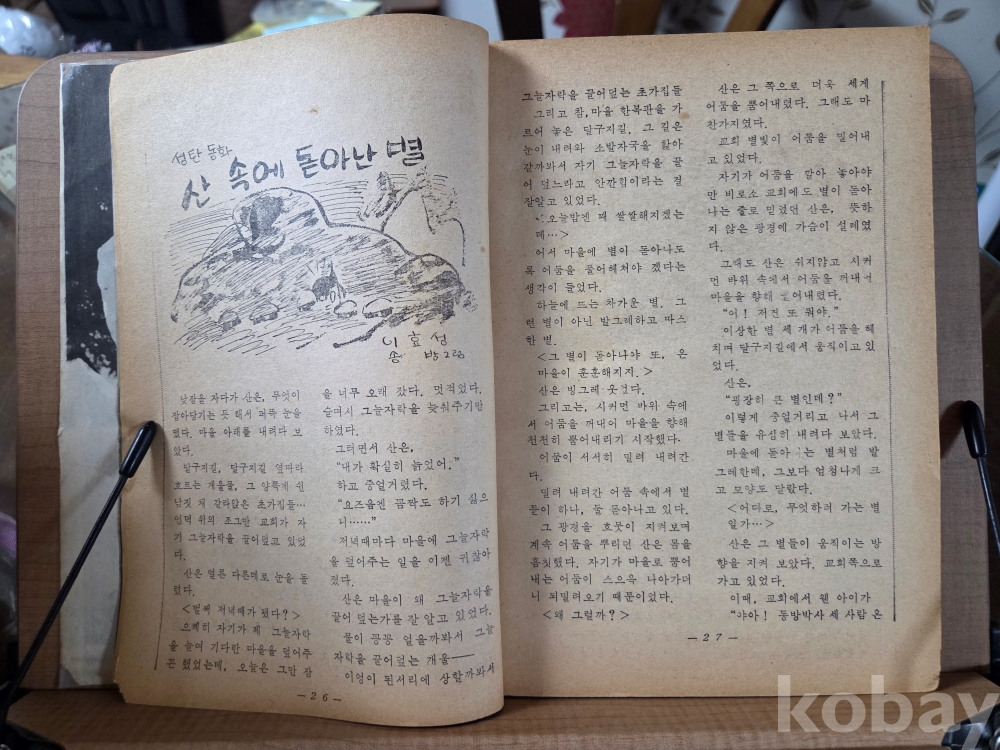 성탄 동화
산 속에 돋아난 별
이 효 성
송 방 그림
낮잠을 자다가 산은, 무엇이
잡아당기는 듯 해서 퍼뜩 눈을
떴다. 마을 아래를 내려다 보
았다.
달구지길, 달구지길 옆따라
흐르는 개울물, 그 양쪽에 쉰
남짓 채 갈라앉은 초가집들…
언덕 위의 조그만 교회가 자
기 그늘자락을 끌어덮고 있었
다.
산은 얼른 다른데로 눈을 돌
렸다.
<벌써 저녁때가 됐다?>
으레히 자기가 제 그늘자락
을 늘여 기다란 마을을 덮어주
곤 했었는데, 오늘은 그만 잠
을 너무 오래 잤다. 멋적었다.
슬며시 그늘자락을 늦춰주기만
하였다.
그러면서 산은,
“내가 확실히 늙었어.”
하고 중얼거렸다.
“요즈음엔 꼼짝도 하기 싫으
니……”
저녁때마다 마을에 그늘자락
을 덮어주는 일을 이젠 귀찮아
졌다.
산은 마을이 왜 그늘자락을
끌어 덮는가를 잘 알고 있었다.
물이 꽁꽁 얼을까봐서 그늘
자락을 끌어덮는 개울——
이엉이 된서리에 상할까봐서
—26—
그늘자락을 끌어덮는 초가집들
그리고 참, 마을 한복판을 가
르어 놓은 달구지길, 그 길은
눈이 내려와 소발자국을 핥아
갈까봐서 자기 그늘자락을 끌
어 덮느라고 안깐힘이라는 걸
잘알고 있었다.
<오늘밤엔 꽤 쌀쌀해지겠는
데…>
어서 마을에 별이 돋아나도
록 어둠을 풀어헤쳐야 겠다는
생각이 들었다.
하늘에 드는 차가운 별. 그
런 별이 아닌 발그레하고 따스
한 별.
<그 별이 돋아나야 또, 온
마을이 훈훈해지지.>
산은 빙그레 웃었다.
그리고는, 시커먼 바위 속에
서 어둠을 꺼내어 마을을 향해
천천히 뿜어내리기 시작했다.
어둠이 서서히 밀려 내려간
다.
밀려 내려간 어둠 속에서 별
들이 하나, 둘 돋아나고 있다.
그 광경을 흐뭇이 지켜보며
계속 어둠을 뿌리던 산은 몸을
흠칫했다. 자기가 마을로 뿜어
내는 어둠이 스으윽 나아가더
니 되밀려오기 때문이었다.
<왜 그럴까?>
산은 그 쪽으로 더욱 세게
어둠을 뿜어내렸다. 그래도 마
찬가지였다.
교회 별빛이 어둠을 밀어내
고 있었다.
자기가 어둠을 깔아 놓아야
만 비로소 교회에도 별이 돋아
나는 줄로 믿었던 산은, 뜻하
지 않은 광경에 가슴이 설레였
다.
그래도 산은 쉬지않고 시커
먼 바위 속에서 어둠을 꺼내어
마을을 향해 뿜어내렸다.
“어! 저건 또 뭐야.”
이상한 별 세 개가 어둠을 헤
치며 달구지길에서 움직이고 있
었다.
산은,
“굉장히 큰 별인데?”
이렇게 중얼거리고 나서 그
별들을 유심히 내려다 보았다.
마을에 돋아 는 별처럼 발
그레한데, 그보다 엄청나게 크
고 모양도 달랐다.
<어디로, 무엇하러 가는 별
일가…>
산은 그 별들이 움직이는 방
향을 지켜 보았다. 교회쪽으로
가고 있었다.
이때, 교회에서 웬 아이가
“야아! 동방박사 세 사람 은
—27—
kobay